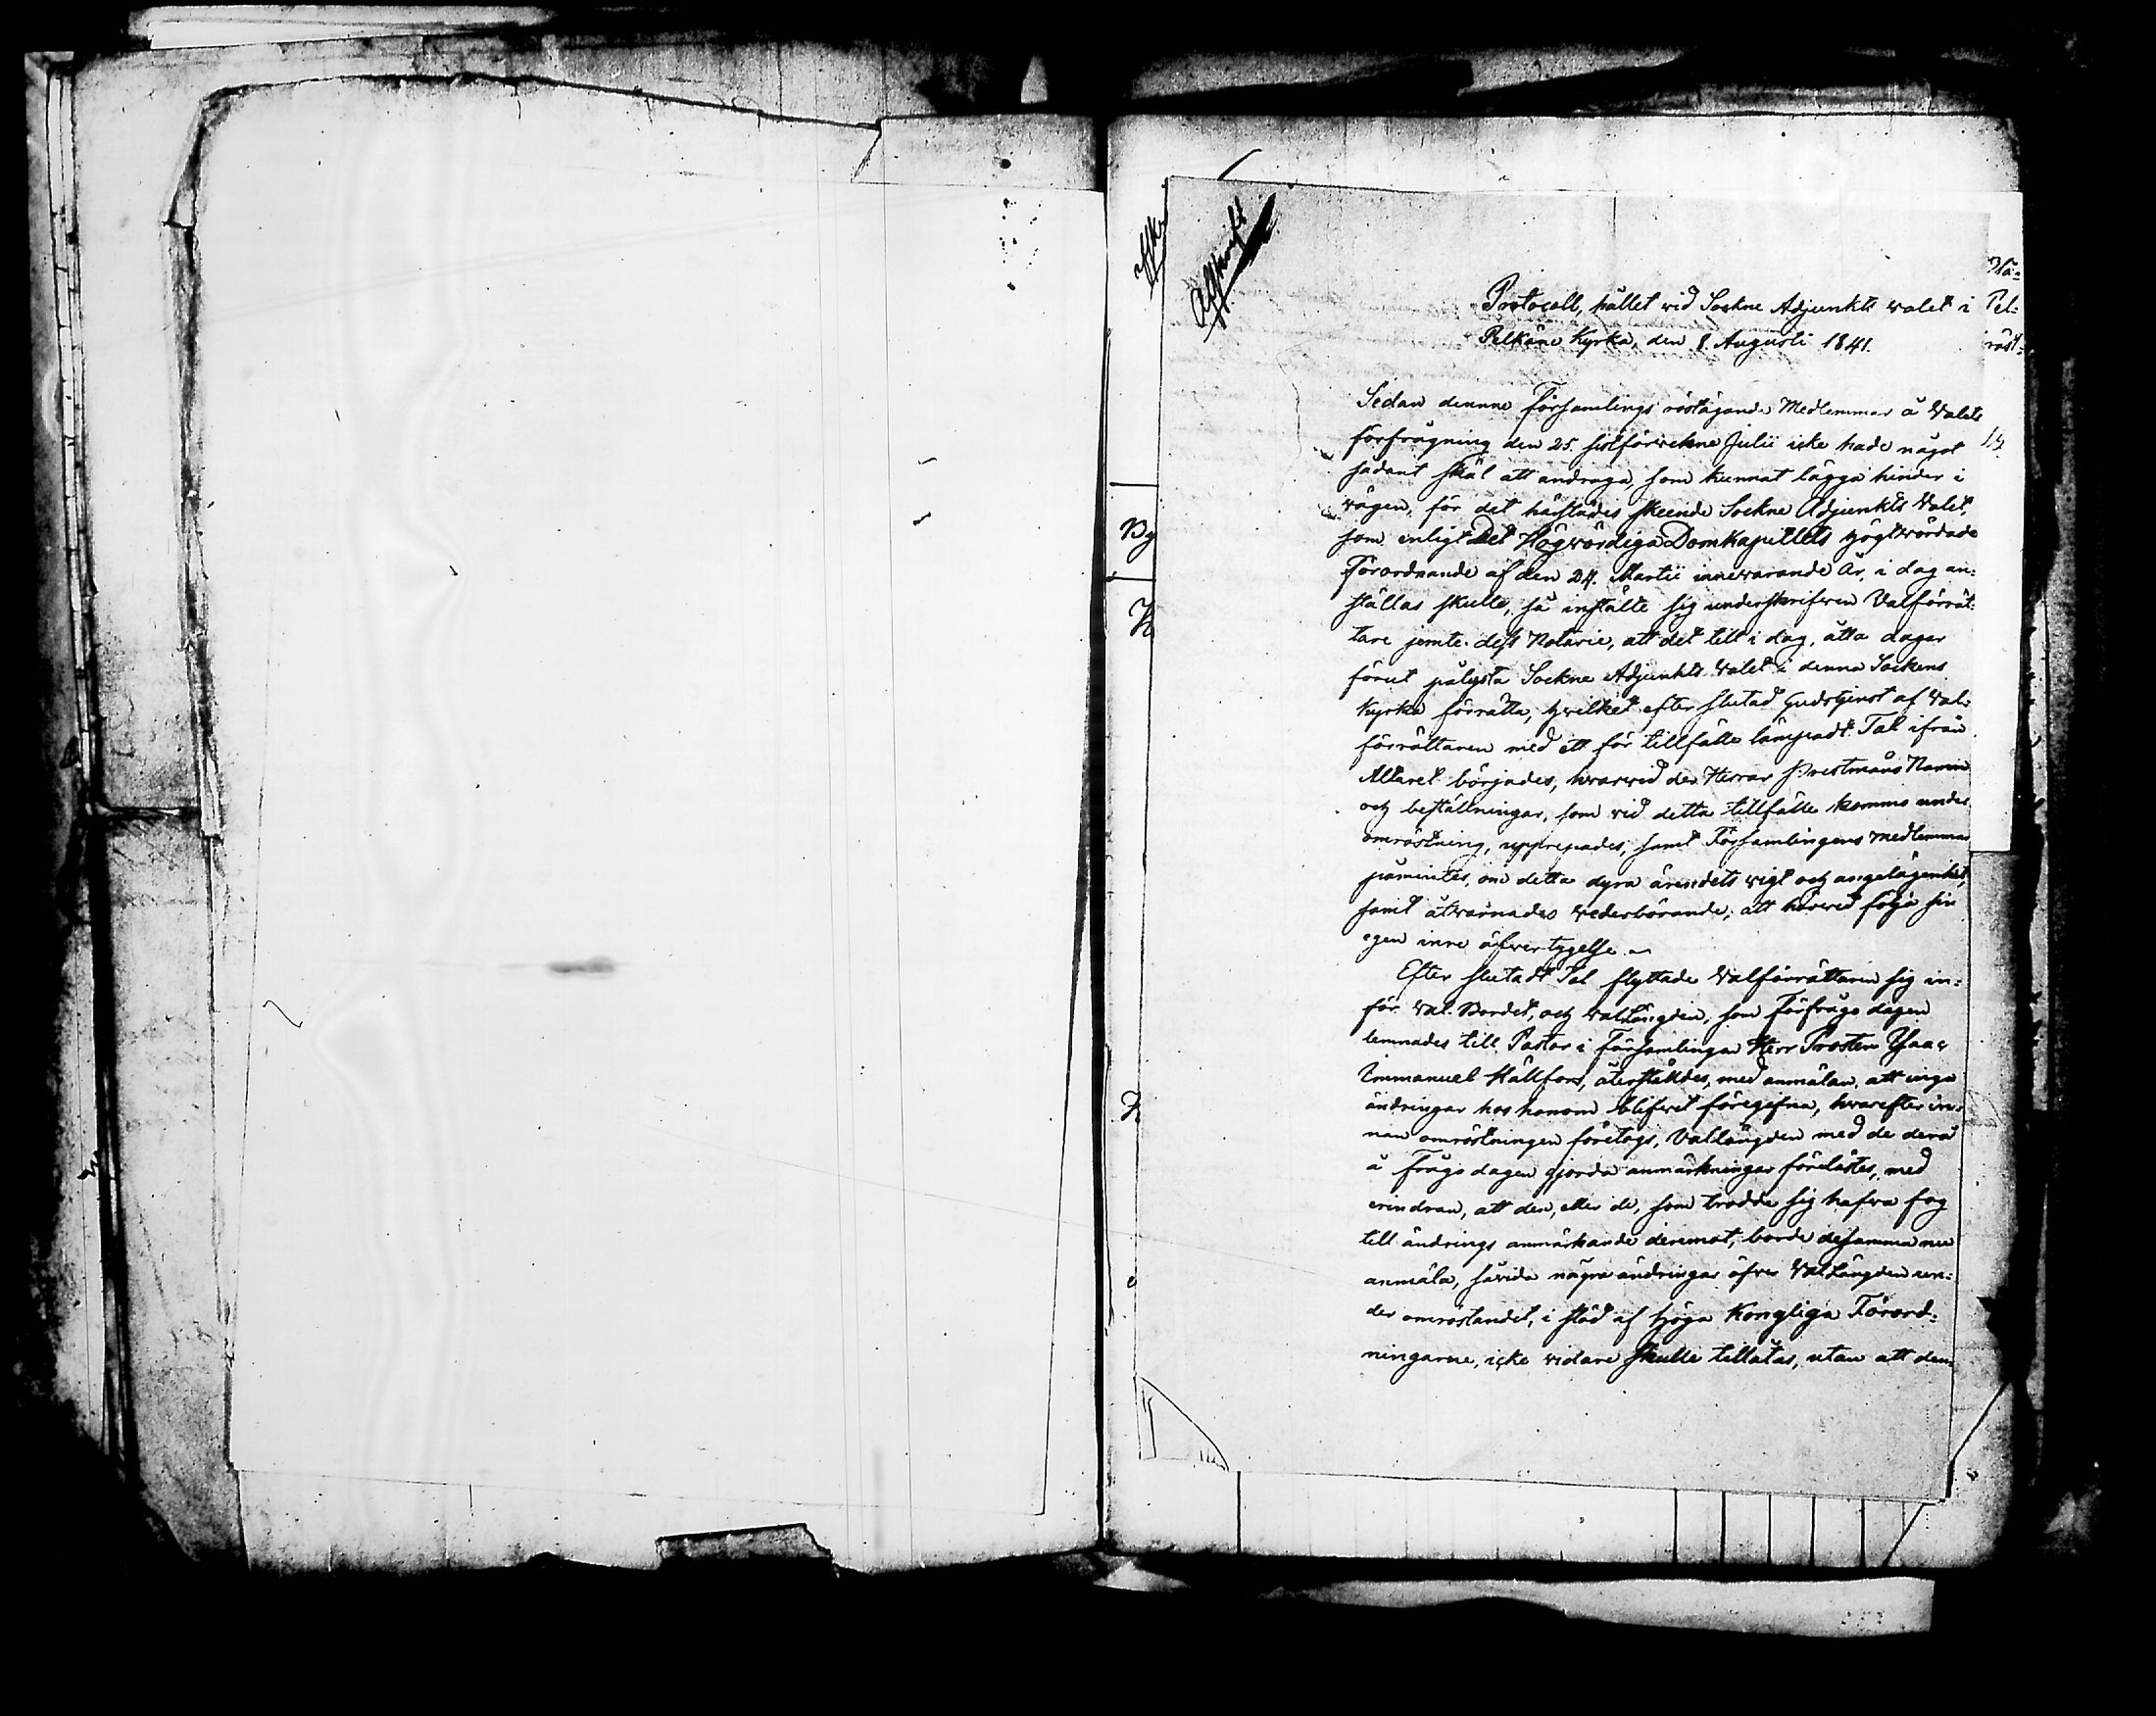 Affskrift
Protocoll, hållet vid Sockne Adjunkts valet i
Pelkäne Kyrka, den 8 Augusti 1841.
Sedan dennne Församlings röstägande Medlemmar å Valets
förfrågning den 25. sistförvekne Julii icke hade något
sådant skäl att andraga, som kunnat lägga hinder i
vägen, för det härstädes skeende Sockne Adjunkts Valet,
som enligt Det Högvördiga Domkapitlets högtvördade
Förordnande af den 24. Martii innevarande År, i dag an-
ställas skulle, så instälte sig underskrifven Valförrät-
tare jemte dess Notarie, att det till i dag, åtta dagar
förut pålysta Sockne Adjunkts Valet i denna Sockens
Kyrka förrätta, hvilket efter slutad Gudstjenst af Val-
förrättaren med ett för tillfälle lämpadt Tal ifrån
Altaret börjades, hvarvid de Herrar Prestmäns Namn
och beställningar, som vid detta tillfälle komma under
omröstning, upprepades, samt Församlingens medlemmar
påmintes, om detta dyra ärendets vigt och angelägenhet,
samt åtvarnades vederbörande, att härvid följa sin
egen inre öfvertygelse.
Efter slutadt Tal flyttade Valförrättaren sig in-
för Val-Bordet, och Vallängden, som Förfrågo dagen
lemnades till Pastor i Församlingen Herr Prosten Isaac
Immanuel Hällfors, återställdes, med anmälan, att inga
ändringar hos honom blifvit föregifna, hvarefter in-
nan omröstningen företogs, Vallängden med de derå
å Frågo dagen gjorda anmärkningar förelästes, med
erindran, att den, eller de, som trodde sig hafva fog
till ändrings anmärkande deremot, borde desamma nu
anmäla, såvida några ändringar öfver Vallängden un-
der omröstandet, i stöd af höga Kongliga Förord-
ningarne, icke vidare skulle tillåtas, utan att den-
Pel-
röst-
By